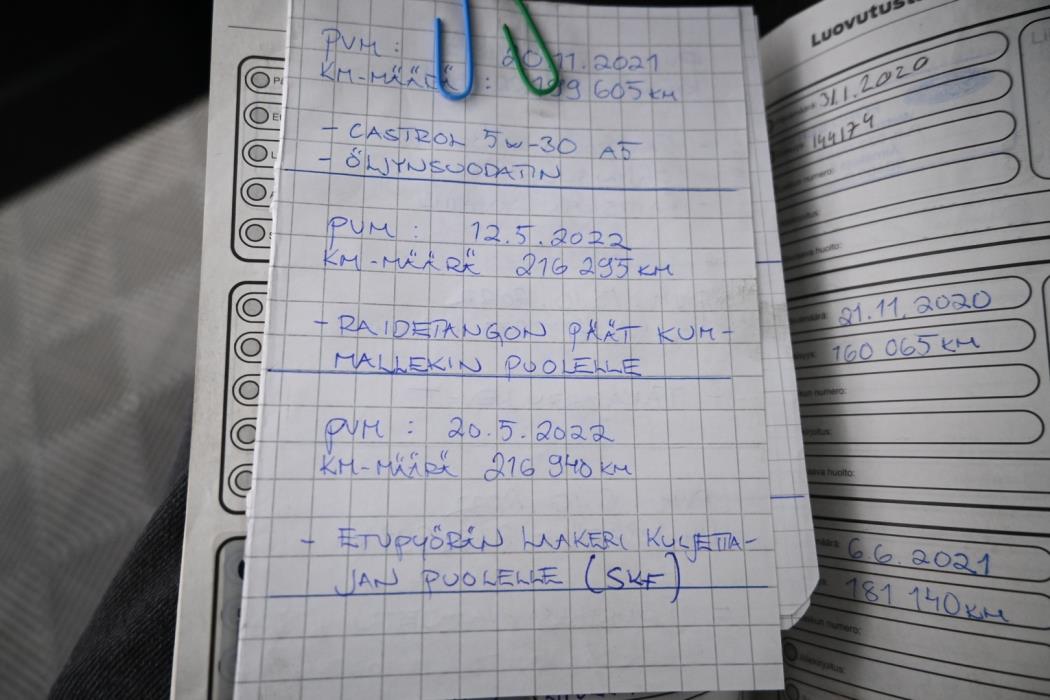 PVM : 20.11.2021
KM-MÄÄRÄ : 199 605 KM
- CASTROL 5W-30 A5
- ÖLJYNSUODATIN
PVM : 12.5.2022
KM-MÄÄRÄ 216 295 KM
- RAIDETANGON PÄÄT KUM-
MALLEKIN PUOLELLE
PVM : 20.5.2022
KM-MÄÄRÄ 216 940 KM
- ETUPYÖRÄN LAAKERI KULJETTA-
JAN PUOLELLE (SKF)
31.1.2020
144174
numero:
huolto:
21.11.2020
160 065 KM
numero:
huolto:
6.6.2021
181 140 KM
numero: